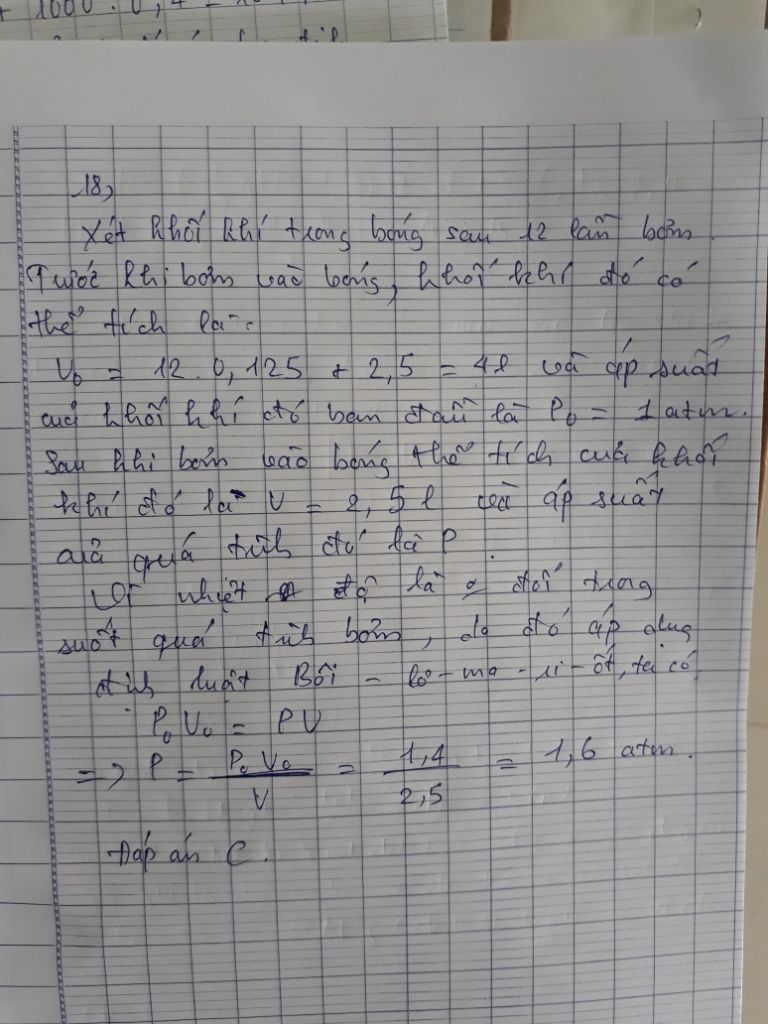 + 1000 . 0,4 =
18,
Xét khối khí trong bóng sau 12 lần bơm.
Trước khi bơm vào bóng, khối khí đó có
thể tích là:
V₀ = 12 . 0,125 + 2,5 = 4l và áp suất
của khối khí đó ban đầu là P₀ = 1 atm.
Sau khi bơm vào bóng thể tích của khối
khí đó là V = 2,5 l và áp suất
của quá trình đó là P.
Vì nhiệt độ là o đổi trong
suốt quá trình bơm, do đó áp dụng
định luật Bôi - lơ - ma - ri - ốt, ta có
P₀ V₀ = PV
=> P = P₀ V₀ / V = 1,4 / 2,5 = 1,6 atm.
Đáp án C.